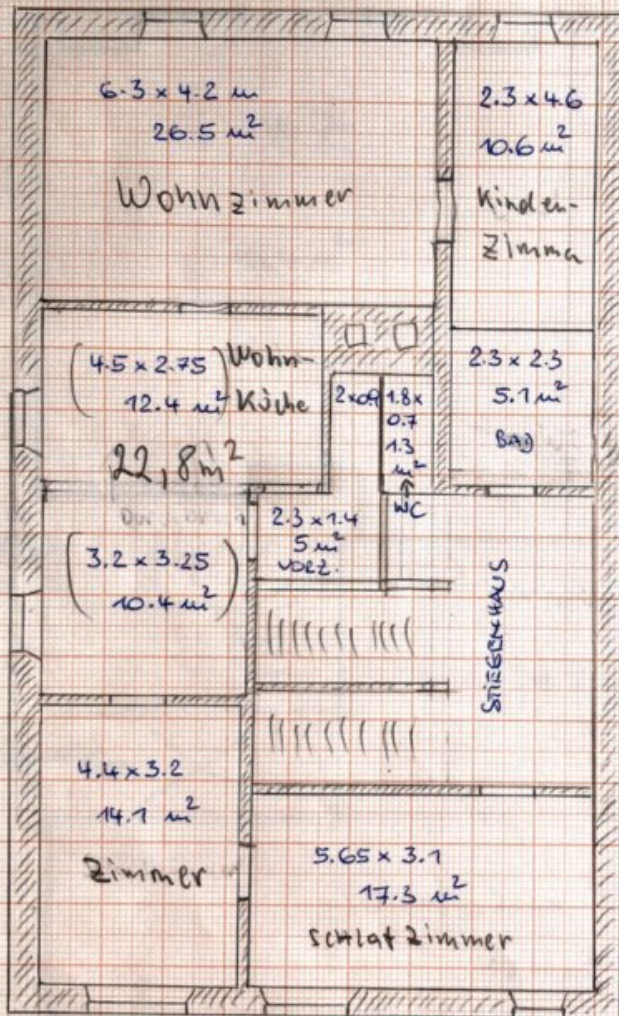 6.3 x 4.2 m
26.5 m²
Wohnzimmer
2.3 x 4.6
10.6 m²
Kinder-
Zimma
(4.5 x 2.75)
12.4 m²
Wohn-
Küche
22,8 m²
(3.2 x 3.25)
10.4 m²
2x0.9
1.8x
0.7
1.3
m²
WC
2.3 x 2.3
5.1 m²
BAD
2.3 x 1.4
5 m²
VORZ.
STIEGENHAUS
4.4 x 3.2
14.1 m²
Zimmer
5.65 x 3.1
17.3 m²
schlafzimmer